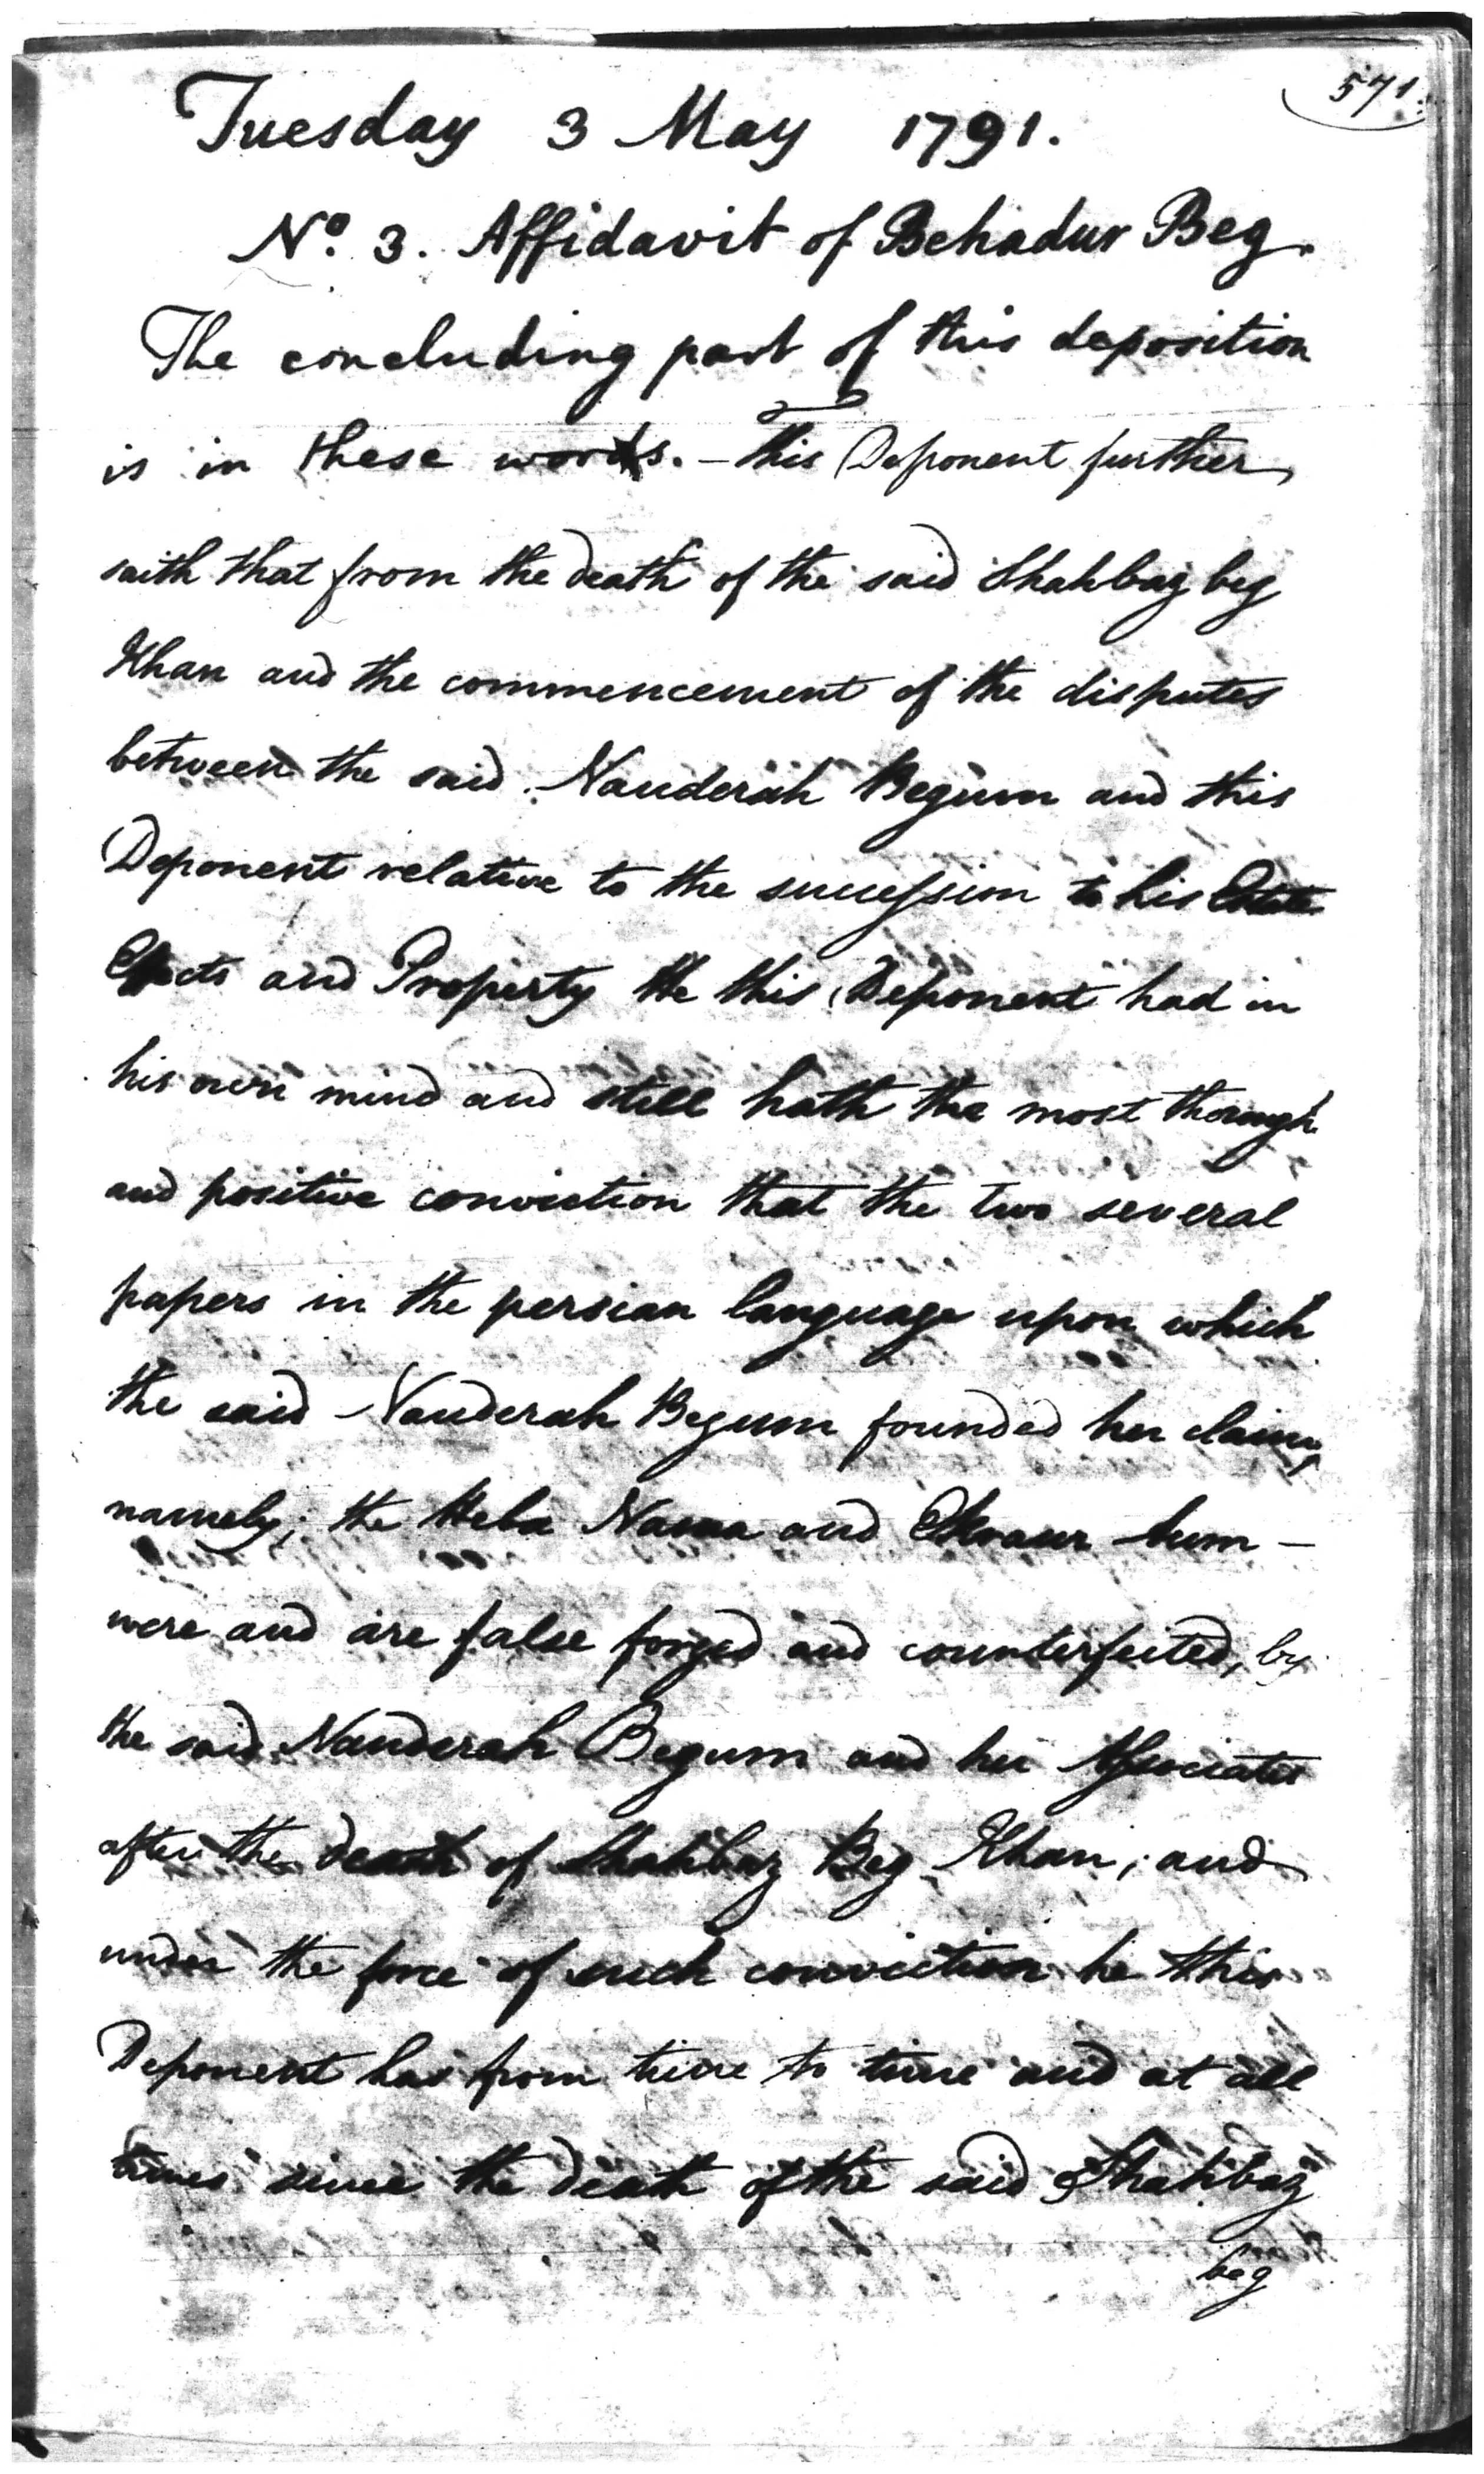 571.
Tuesday 3 May 1791.
No. 3. Affidavit of Behadur Beg.
The concluding part of this deposition
is in these words. - This Deponent further
saith that from the death of the said Shahbaz beg
Khan and the commencement of the disputes
between the said Nauderah Begum and this
Deponent relative to the succession to his Estate
Effects and Property He this Deponent had in
his own mind and still hath the most thorough
and positive conviction that the two several
papers in the persian language upon which
the said Nauderah Begum founded her claims,
namely; the Heba Nama and
were and are false forged and counterfeited, by
the said Nauderah Begum and her Associates
after the death of Shahbaz Beg Khan; and
under the force of such conviction he this
Deponent has from time to time and at all
times since the death of the said Shahbaz
beg